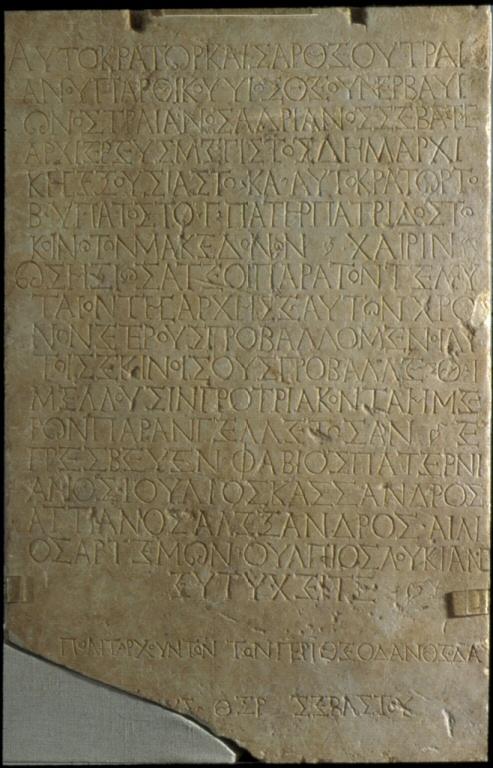 ΑΥΤΟΚΡΑΤΩΡΚΑΙΣΑΡΘΕΟΥΤΡΑΙ
ΑΝΟΥΠΑΡΘΙΚΟΥΥΙΟΣΘΕΟΥΝΕΡΒΑΥΙ
ΩΝΟΣΤΡΑΙΑΝΟΣΑΔΡΙΑΝΟΣΣΕΒΑΣΤΟΣ
ΑΡΧΙΕΡΕΥΣΜΕΓΙΣΤΟΣΔΗΜΑΡΧΙ
ΚΗΣΕΞΟΥΣΙΑΣΤΟ ΚΑ ΑΥΤΟΚΡΑΤΩΡΤΟ
Β ΥΠΑΤΟΣΤΟ Γ ΠΑΤΗΡΠΑΤΡΙΔΟΣΤΩ
ΚΟΙΝΩΤΩΝΜΑΚΕΔΟΝΩΝ ΧΑΙΡΙΝ
ΤΕΛΕΥ
ΤΩΝΤΗΣΑΡΧΗΣΕΑΥΤΩΝΧΡΟ
ΝΟΝΕΤΕΡΟΥΣΠΡΟΒΑΛΛΟΜΕΝΟΙΑΥ
ΤΟΙΣΕΚΙΝΟΙΣΟΥΣΠΡΟΒΑΛΛΕΣΘΑΙ
ΜΕΛΛΟΥΣΙΝΠΡΟΤΡΙΑΚΟΝΤΑΗΜΕ
ΡΩΝΠΑΡΑΝΓΕΛΛΕΤΩΣΑΝ Ε
ΠΡΕΣΒΕΥΕΝ ΦΑΒΙΟΣΠΑΤΕΡΝΙ
ΑΝΟΣΙΟΥΛΙΟΣΚΑΣΣΑΝΔΡΟΣ
ΑΠΠΙΑΝΟΣΑΛΕΞΑΝΔΡΟΣΑΙΛΙ
ΟΣΑΡΤΕΜΩΝΟΥΛΠΙΟΣΛΟΥΚΙΑΝΟΣ
ΕΥΤΥΧΕΙΤΕ
ΠΟΛΙΤΑΡΧΟΥΝΤΩΝ ΤΩΝΠΕΡΙΘΕΟΔΑΝΘΕΟΔΑ
ΟΥΣ ΘΕΡ ΣΕΒΑΣΤΟΥ